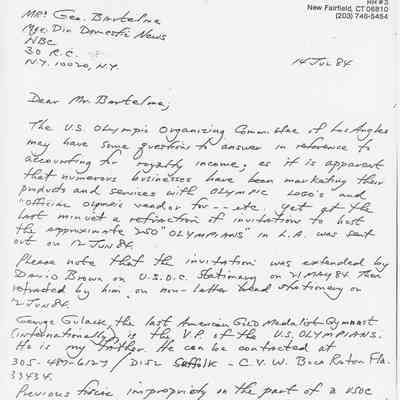 RR#3
New Fairfield, CT 06810
(203) 746-5454
MR. Geo. Bartelma
Mge. Div Domestic News
NBC
30 R.C.
N.Y. 10020, N.Y.
14 Jul 84
Dear Mr. Bartelma;
The U.S. Olympic Organizing Committee of Los Angles
may have some questions to answer in reference to
accounting for royalty income; as it is apparent
that numerous businesses have been marketing their
products and services with OLYMPIC LOGO's and
"Official Olympic vendor for -- etc. yet at the
last minuet a refraction if invitations to host
the approximate 250 "OLYMPIANS" in L.A. was sent
out on 12 JUN 84.
Please note that the invitation was extended by
David Brown on U.S.O.C. Stationary on 21 MAY 84 Then
retracted by him on non-letter head stationary on
12 JUN 84.
George Gulack, the last American Gold Medalist Gymnast
(international) is the V.P. of the U.S. OLYMPIANS.
He is my father. He can be contacted at
305-487-6127 / D152 Suffolk - C.V.W. Boca Raton Fla.
33434.
Previous fiscie impropriety on the part of a USOC